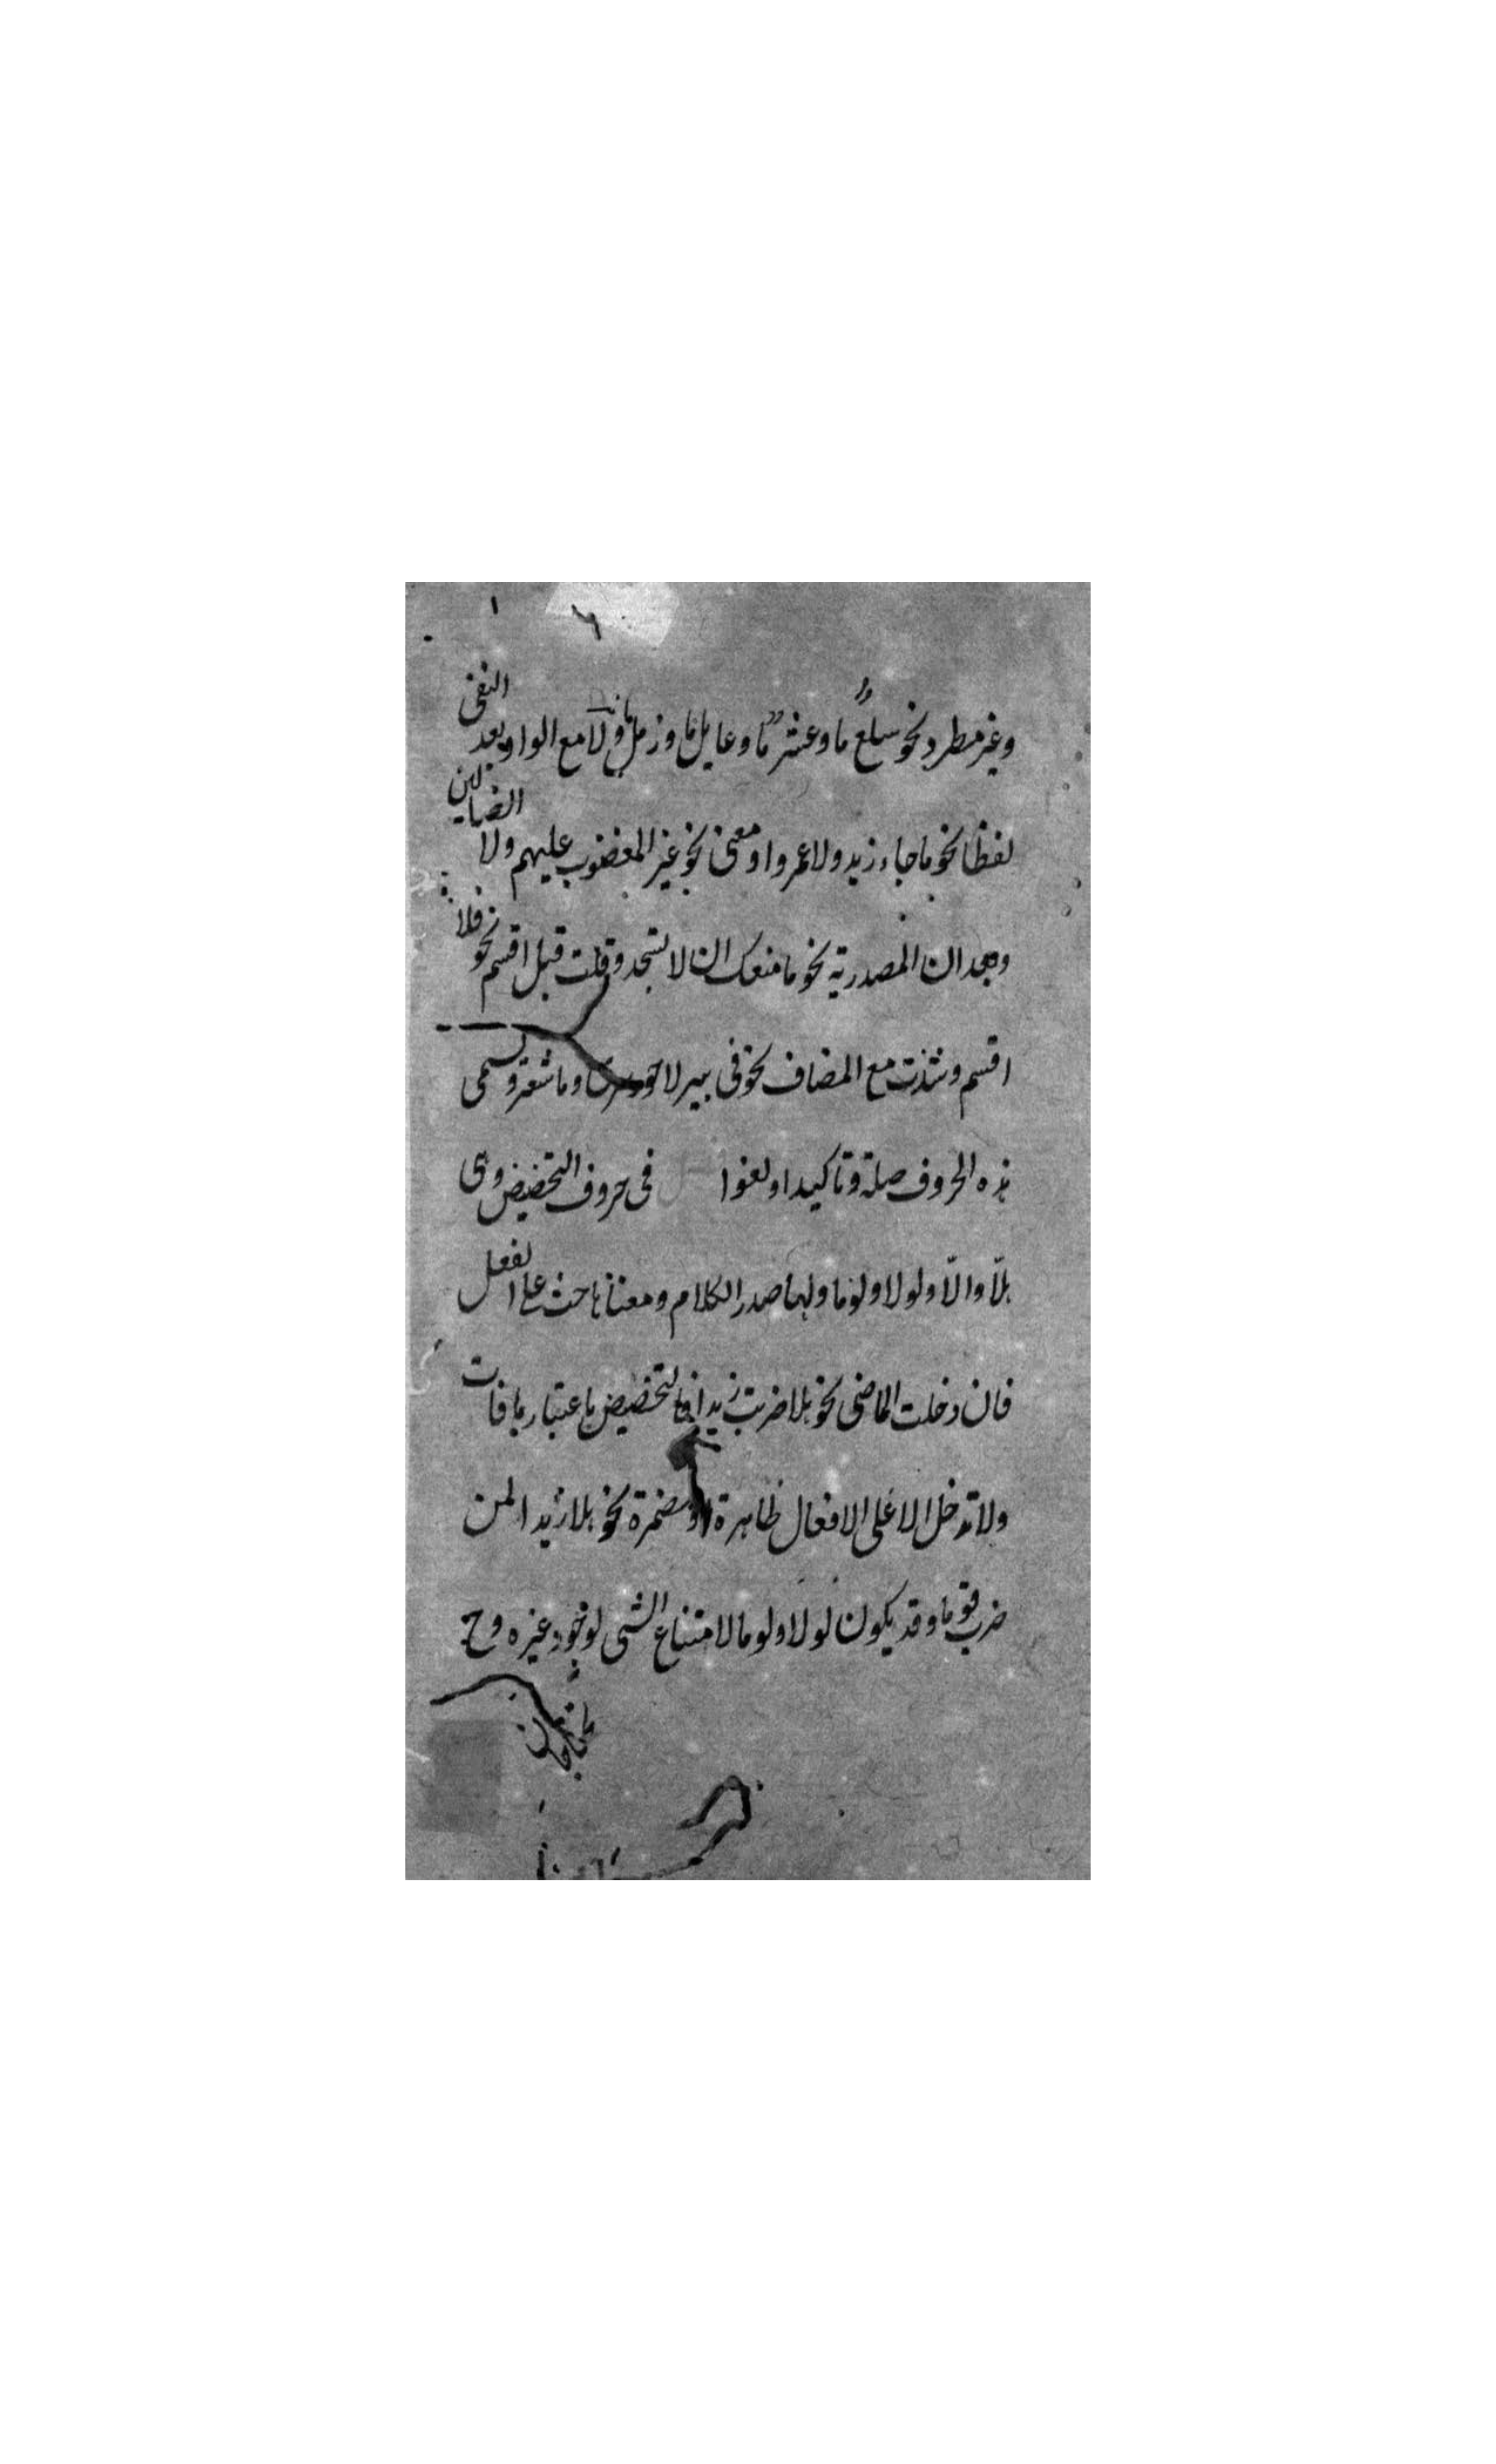 وغير مطرد نحو سلع ما وعشر ما وعايل ما و لا مع الواو بعد النفى
لفظا نحو ما جاء زيد ولا عمرو او معنى نحو غير المغضوب عليهم ولا الضالين
وبعد ان المصدرية نحو ما منعك ان لا تسجد وقلت قبل اقسم نحو فلا
اقسم وشذت مع المضاف نحو فى بير لا وما شعر وتسمى
هذه الحروف صلة وتاكيدا ولغوا فى حروف التحضيض وهى
هلّا والّا ولولا ولوما ولها صدر الكلام ومعناها حث على الفعل
فان دخلت الماضى نحو هلا ضربت زيدا فالتحضيض باعتبار ما فات
ولا تدخل الا على الافعال ظاهرة او مضمرة نحو هلا زيدا لمن
ضرب قوما وقد يكون لولا ولوما لامتناع الشى لوجود غيره وح